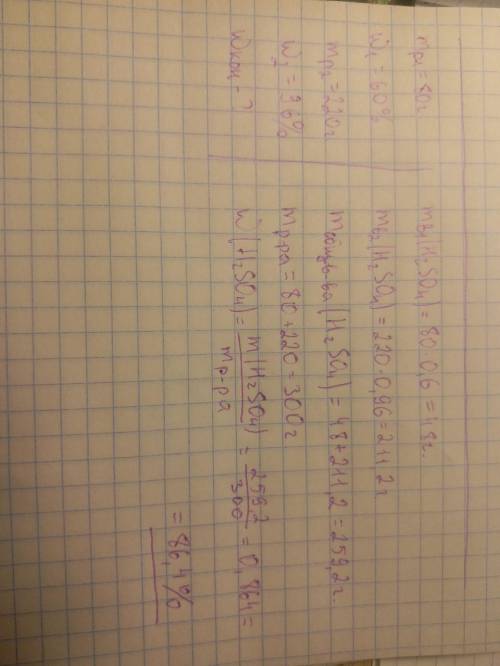 mр1 = 80г
ω1 = 60%
mр2 = 220г
ω2 = 96%
ωкон - ?
mв1(H2SO4) = 80·0,6 = 48г.
mв2(H2SO4) = 220·0,96 = 211,2г
mобщ в-ва (H2SO4) = 48 + 211,2 = 259,2г.
mр-ра = 80 + 220 = 300г
ω(H2SO4) = m(H2SO4) / mр-ра = 259,2 / 300 = 0,864 =
= 86,4%